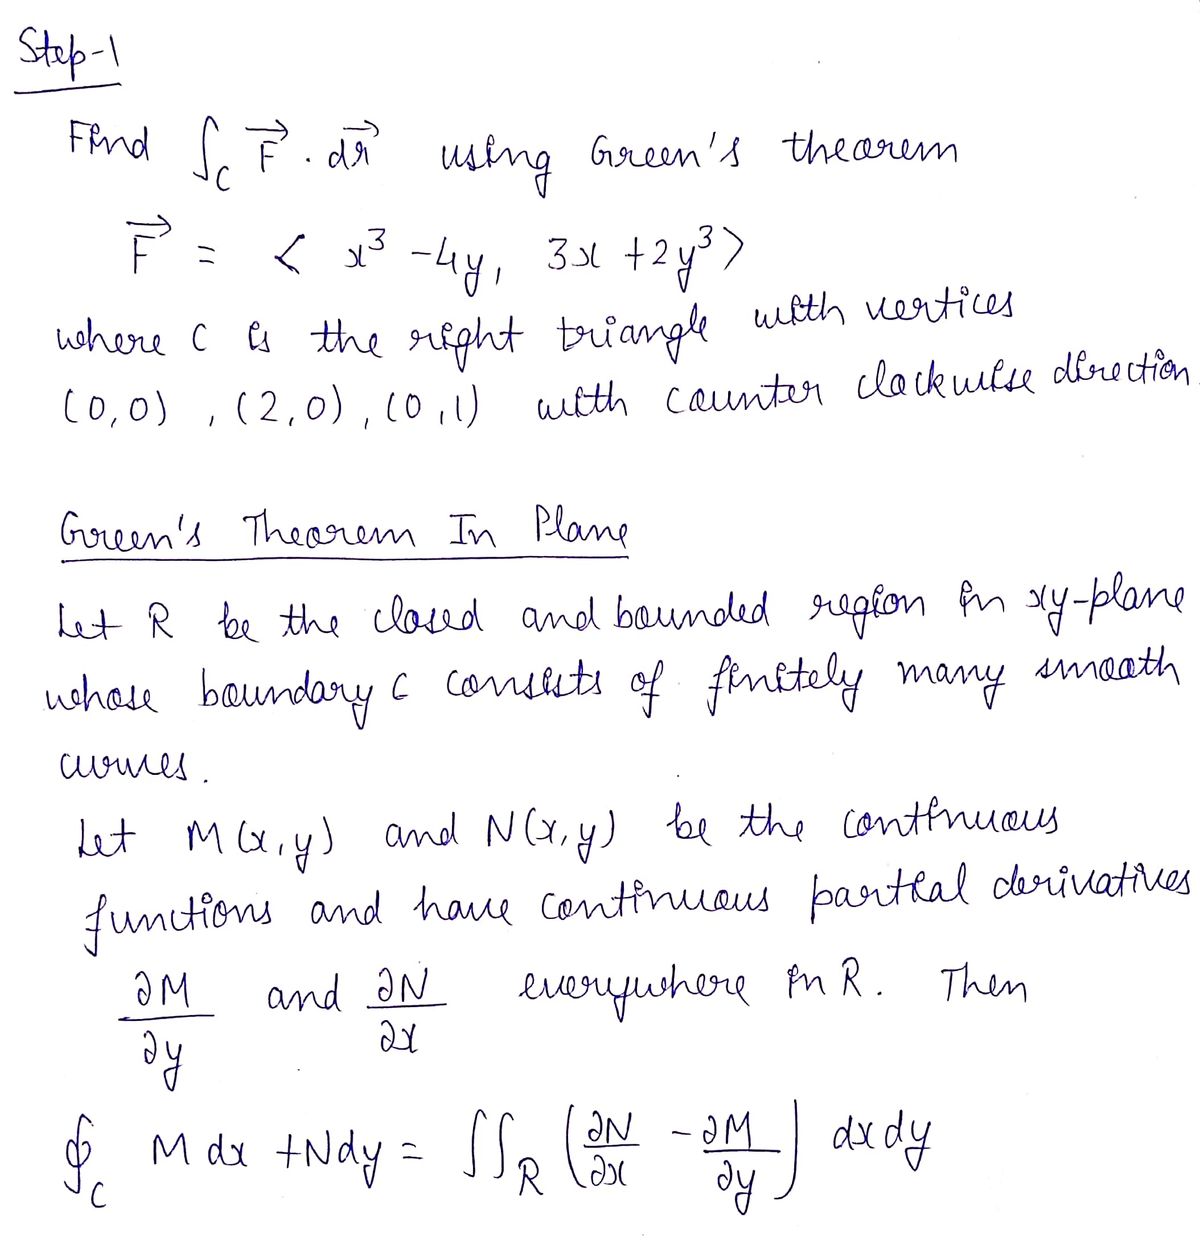 Step-1
Find ∫_C F⃗ . dr⃗ using Green's theorem
F⃗ = < x³ - 4y, 3x + 2y³ >
where C is the right triangle with vertices
(0,0), (2,0), (0,1) with counter clockwise direction.
Green's Theorem In Plane
Let R be the closed and bounded region in xy-plane
whose boundary C consists of finitely many smooth
curves.
Let M(x,y) and N(x,y) be the continuous
functions and have continuous partial derivatives
∂M/∂y and ∂N/∂x everywhere in R. Then
∮_C M dx + N dy = ∬_R (∂N/∂x - ∂M/∂y) dx dy